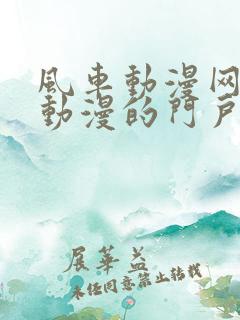 風車動漫网
動漫的門戶
展華益
未经同意禁止转载